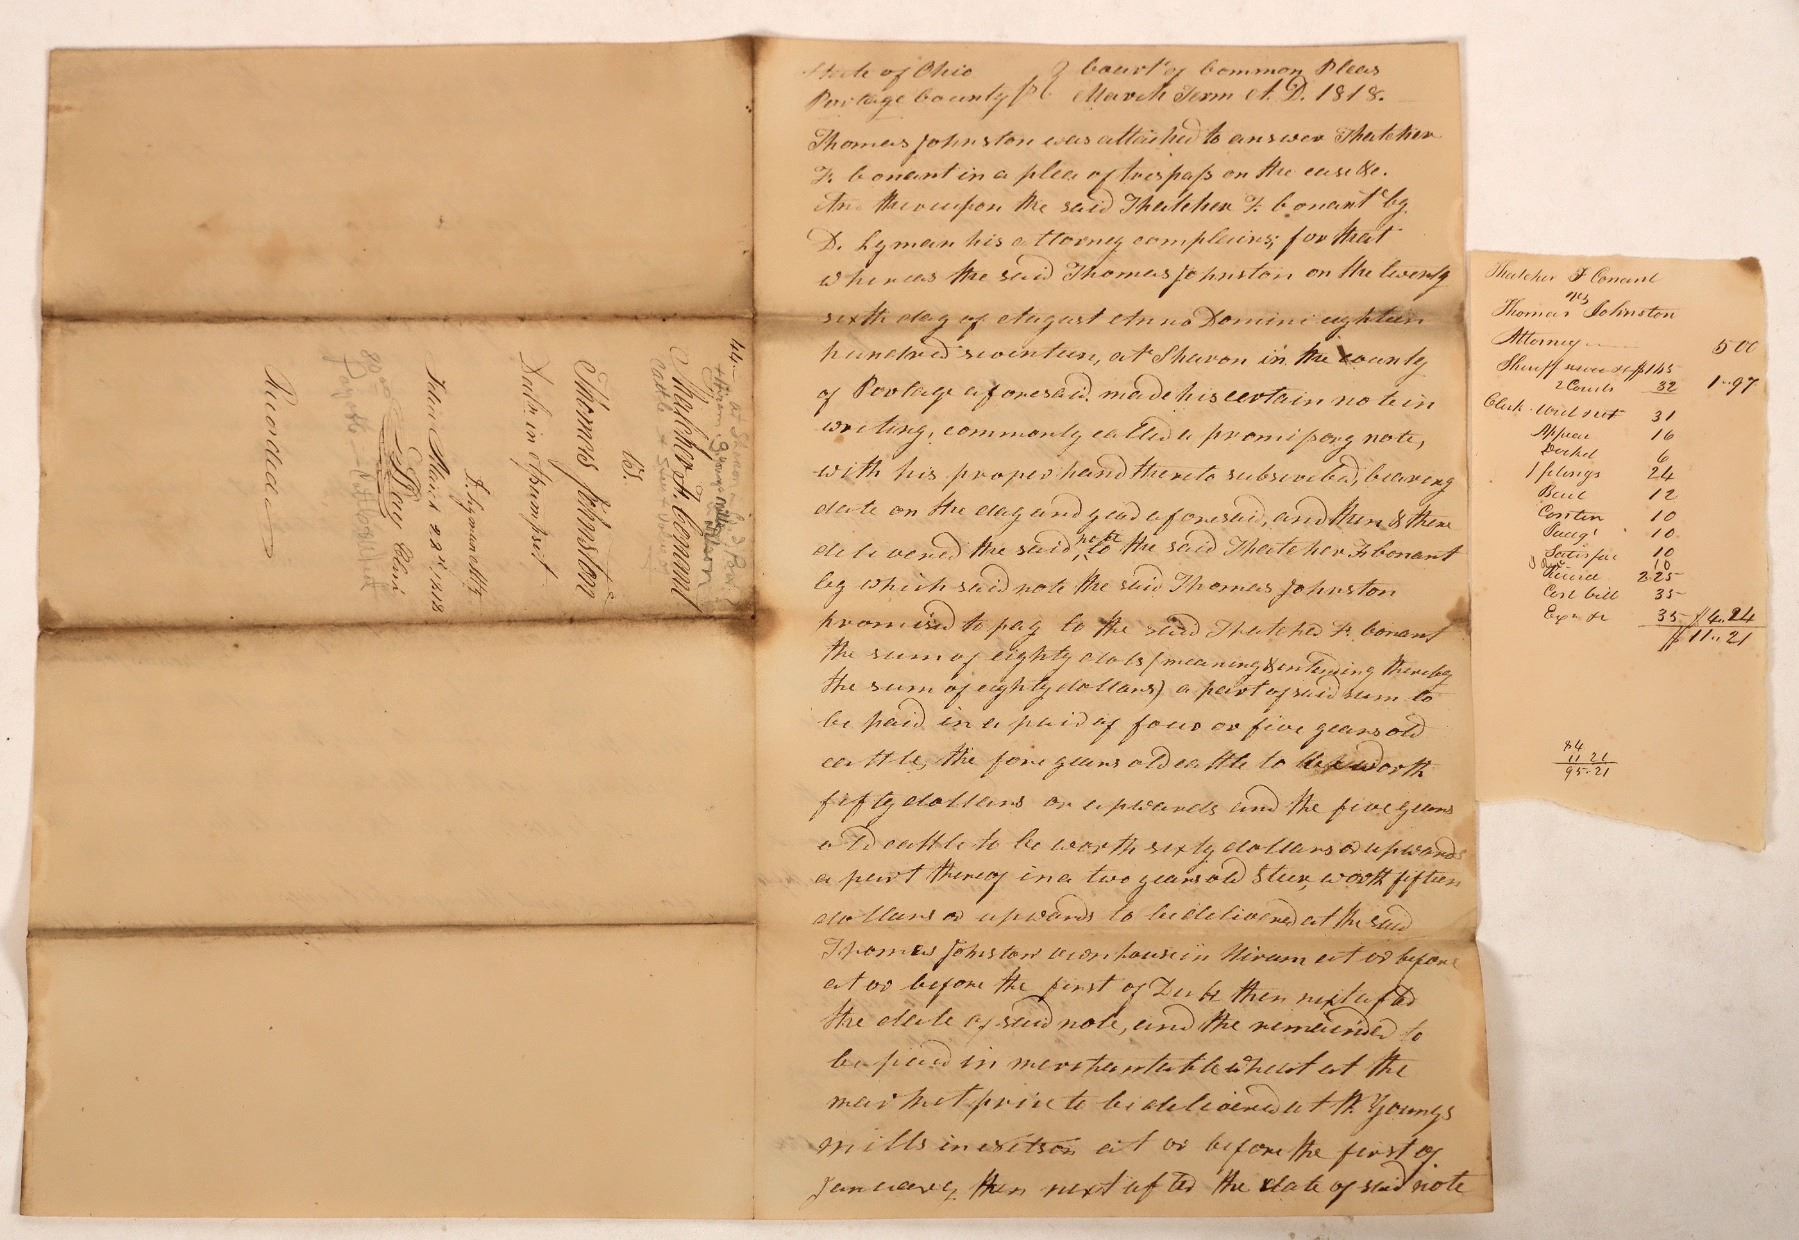 State of Ohio } Court of Common Pleas
Portage County ss } March Term A. D. 1818.
Thomas Johnston was attached to answer Thatcher
F. Conant in a plea of trespass on the case &c.
And thereupon the said Thatcher F. Conant by
D. Lyman his attorney complains; for that
whereas the said Thomas Johnston on the twenty
sixth day of August Anno Domini eighteen
hundred seventeen, at Sharon in the county
of Portage aforesaid, made his certain note in
writing, commonly called a promissory note,
with his proper hand thereto subscribed, bearing
date on the day and year aforesaid, and then & there
delivered the said note to the said Thatcher F. Conant
by which said note the said Thomas Johnston
promised to pay to the said Thatcher F. Conant
the sum of eighty dols (meaning & intending thereby
the sum of eighty dollars) a part of said sum to
be paid in a paid of four or five years old
cattle, the fore years old cattle to be worth
fifty dollars or upwards and the five years
old cattle to be worth sixty dollars or upwards
a part thereof in a two years old steer, worth fifteen
dollars or upwards to be delivered at the said
Thomas Johnston own house in Hiram at or before
at or before the first of Decbr then next after
the date of said note, and the remainder to
be paid in merchantable wheat at the
market price to be delivered at the Youngs
mills in at or before the first of
January then next after the date of said note
44
Thatcher F. Conant
vs.
Thomas Johnston
Dealn in Assumpsit
D. Lyman atty.
Filed March 28th, 1818
Day Clerk
Recorded
Thatcher F Conant
vs
Thomas Johnston
Attorney 5 00
Sheriff $1 45
2 Courts 32 1..97
Clerk 31
Appear 16
Docket 6
1 plengs 24
Rule 12
Contin 10
Judgt 10
Satisfac 10
10
Record 2 25
Cost bill 35
35 $4.24
$11..21
84
11 21
95.21